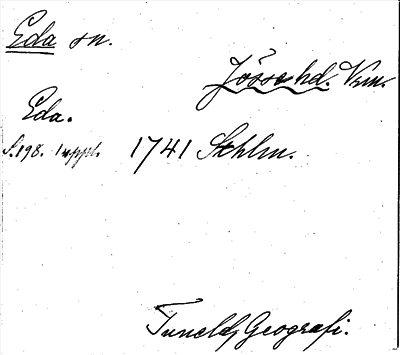 Eda sn.
Jösse hd. Vrm.
Eda.
S. 198. 1 uppl. 1741 Sthlm.
Tunelds Geografi.